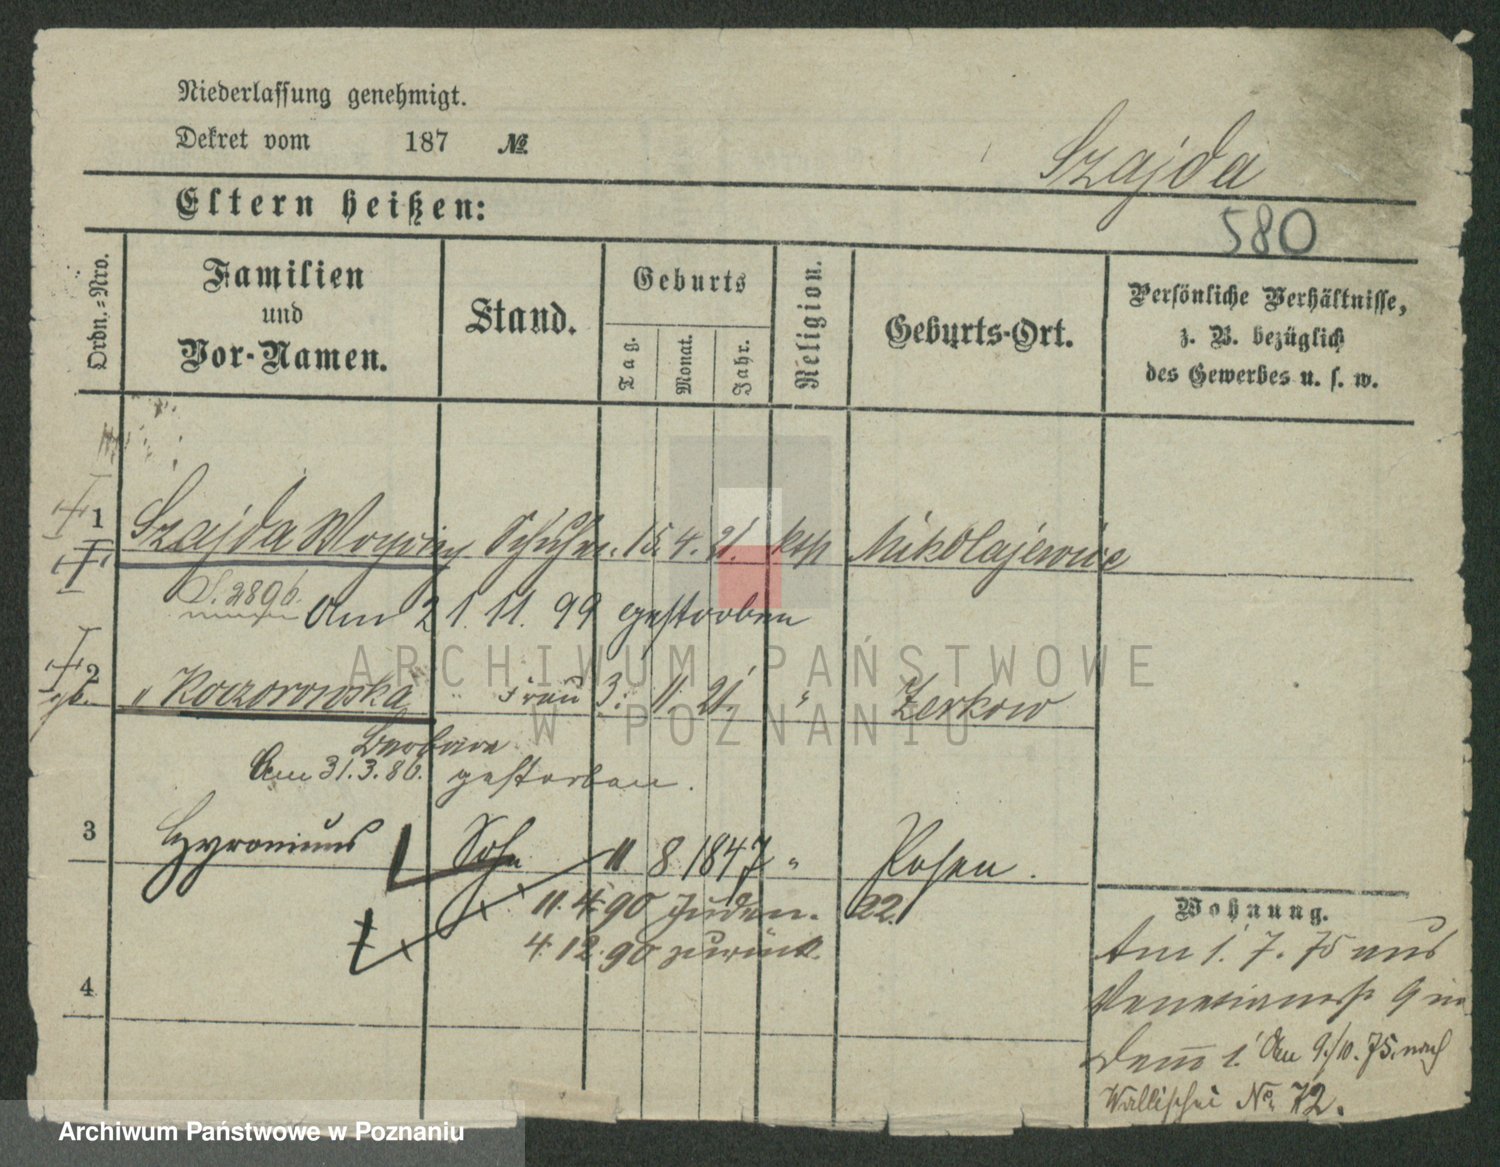 Niederlassung genehmigt.
Dekret vom 187 №
Szajda
Eltern heißen:
580
Ordn.-Nro.
Familien
und
Vor-Namen.
Stand.
Geburts
Tag.
Monat.
Jahr.
Religion.
Geburts-Ort.
Persönliche Verhältnisse,
z. B. bezüglich
des Gewerbes u. s. w.
1 Szajda 15. 4. 21. kth Mikolajewice
Am 21. 11. 99 gestorben
2 " Koczorowska Frau 3. 11. 21. " Zerkow
Barbara
Am 31.3.86. gestorben.
3 Hyronimus Sohn 11 8 1847 " Posen.
11. 4. 90 Juden. 22.
4. 12. 90 zurück.
4
Wohnung.
Am 1. 7. 75 aus
9 in
Am 9./10. 75. nach
Wallischei No. 72.
ARCHIWUM PAŃSTWOWE
W POZNANIU
Archiwum Państwowe w Poznaniu